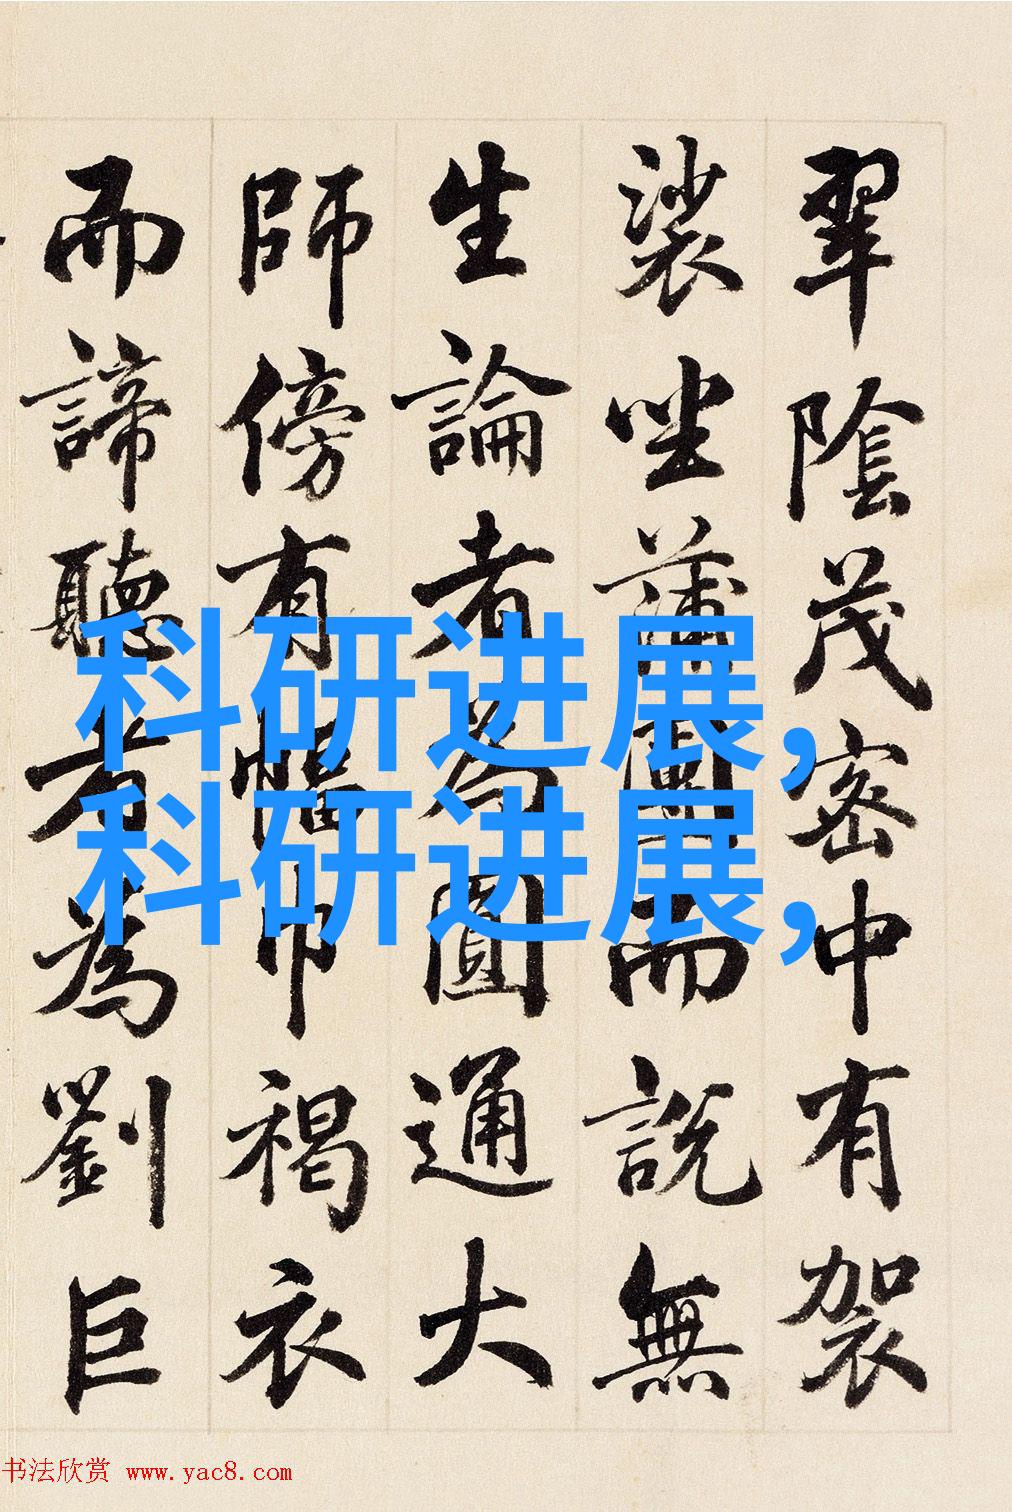 翠陰茂密中有袈
裟坐蒲團而說無
生論者為圓通大
師傍有幅巾褐衣
而諦聽者為劉巨
科研进展,
科研进展,
书法欣赏 www.yac8.com